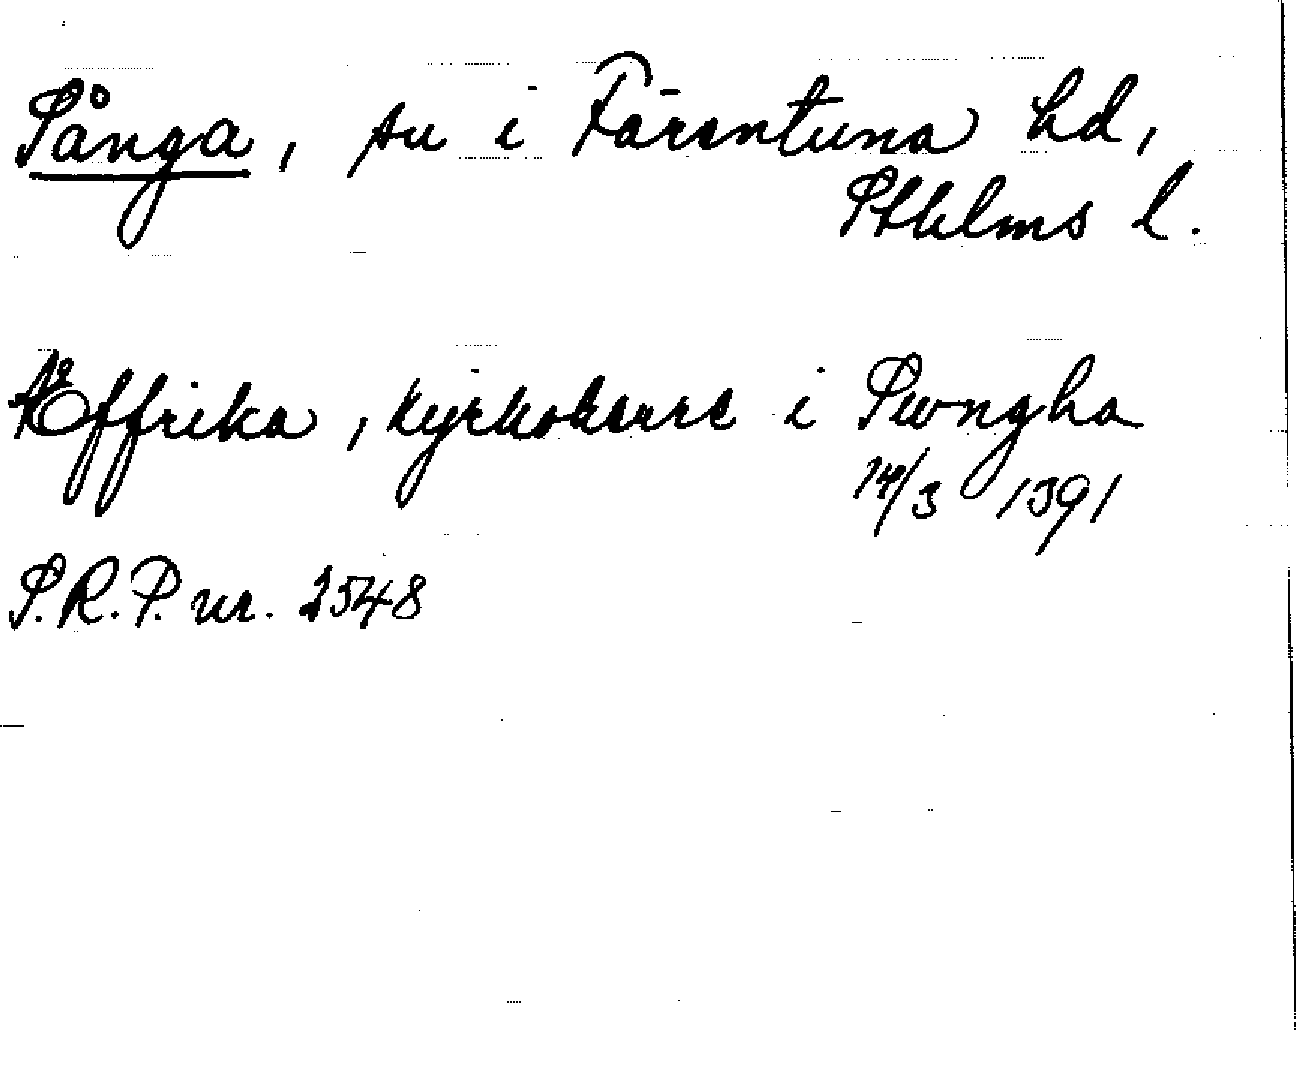 Sånga, sn i Färentuna hd,
Sthlms l.
Æffrika, kyrkoherre i Swngha
14/3 1391
S.R.P. nr. 2548